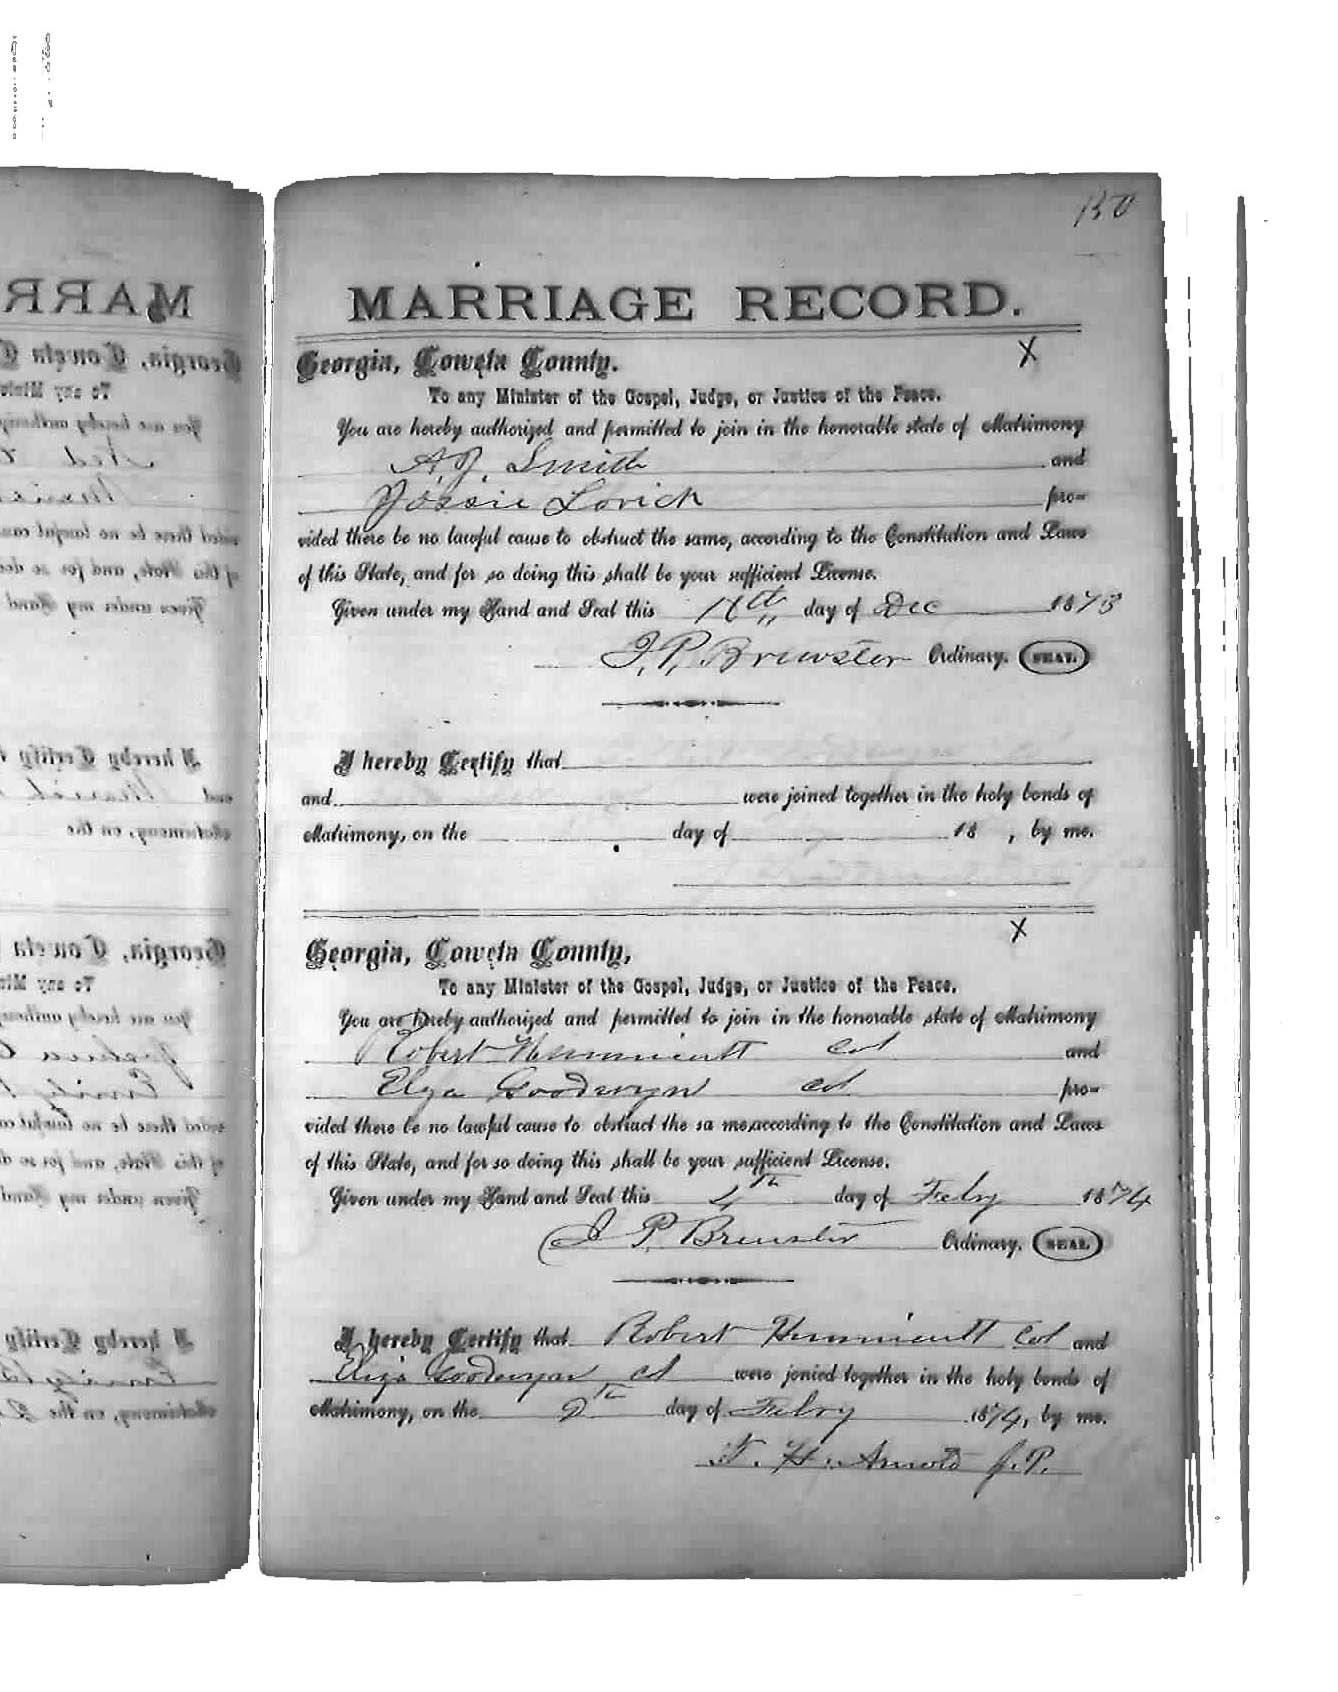 150
MARRIAGE RECORD.
X
Georgia, Coweta County.
To any Minister of the Gospel, Judge, or Justice of the Peace.
You are hereby authorized and permitted to join in the honorable state of Matrimony
A. J. Smith and
Jossie Lovich pro=
vided there be no lawful cause to obstruct the same, according to the Constitution and Laws
of this State, and for so doing this shall be your sufficient License.
Given under my Hand and Seal this day of Dec 1873
J. P. Brewster Ordinary. SEAL.
I hereby Certify that
and were joined together in the holy bonds of
Matrimony, on the day of 18 , by me.
X
Georgia, Coweta County,
To any Minister of the Gospel, Judge, or Justice of the Peace.
You are hereby authorized and permitted to join in the honorable state of Matrimony
Robert Hunnicutt Col and
Elza Goodwyn Col pro=
vided there be no lawful cause to obstruct the sa me,according to the Constitution and Laws
of this State, and for so doing this shall be your sufficient License.
Given under my Hand and Seal this 4th day of Feby 1874
J P. Brewster Ordinary. SEAL
I hereby Certify that Robert Hunnicutt Col and
Eliza Goodwyn Col were jonied together in the holy bonds of
Matrimony, on the day of Feby 1874, by me.
F. H. Arnold J. P.